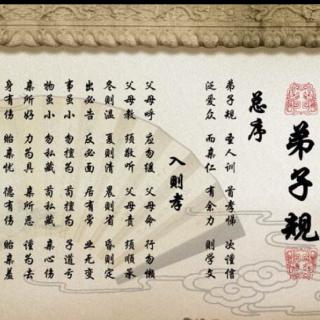 弟子规
总序
弟子规 圣人训 首孝悌 次谨信
泛爱众 而亲仁 有余力 则学文
入则孝
父母呼 应勿缓 父母命 行勿懒
父母教 须敬听 父母责 须顺承
冬则温 夏则清 晨则省 昏则定
出必告 反必面 居有常 业无变
事虽小 勿擅为 苟擅为 子道亏
物虽小 勿私藏 苟私藏 亲心伤
亲所好 力为具 亲所恶 谨为去
身有伤 贻亲忧 德有伤 贻亲羞